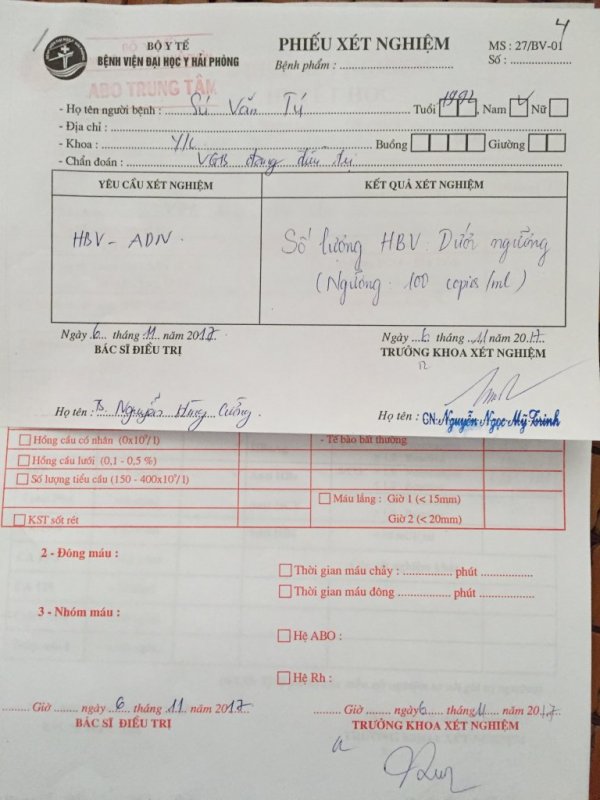 4
BỘ Y TẾ
BỆNH VIỆN ĐẠI HỌC Y HẢI PHÒNG
ABO TRUNG TÂM
PHIẾU XÉT NGHIỆM
Bệnh phẩm :
MS : 27/BV-01
Số :
- Họ tên người bệnh: Sú Văn Tú Tuổi 1992 Nam Nữ
- Địa chỉ :
- Khoa : Y/c Buồng Giường
- Chẩn đoán : VGB đang điều trị
YÊU CẦU XÉT NGHIỆM KẾT QUẢ XÉT NGHIỆM
HBV - ADN. Số lượng HBV: Dưới ngưỡng
(Ngưỡng: 100 copies/ml)
Ngày 6 tháng 11 năm 2017 Ngày 6 tháng 11 năm 2017
BÁC SĨ ĐIỀU TRỊ TRƯỞNG KHOA XÉT NGHIỆM
Họ tên : Nguyễn Hùng Cường. Họ tên : CN. Nguyễn Ngọc Mỹ Trinh
Hồng cầu có nhân (0x10⁹/l) - Tế bào bất thường
Hồng cầu lưới (0,1 - 0,5 %)
Số lượng tiểu cầu (150 - 400x10⁹/l) Máu lắng : Giờ 1 (< 15mm)
KST sốt rét Giờ 2 (< 20mm)
2 - Đông máu :
Thời gian máu chảy : phút
Thời gian máu đông phút
3 - Nhóm máu :
Hệ ABO :
Hệ Rh :
Giờ ngày 6 tháng 11 năm 2017 Giờ ngày 6 tháng 11 năm 2017
BÁC SĨ ĐIỀU TRỊ TRƯỞNG KHOA XÉT NGHIỆM